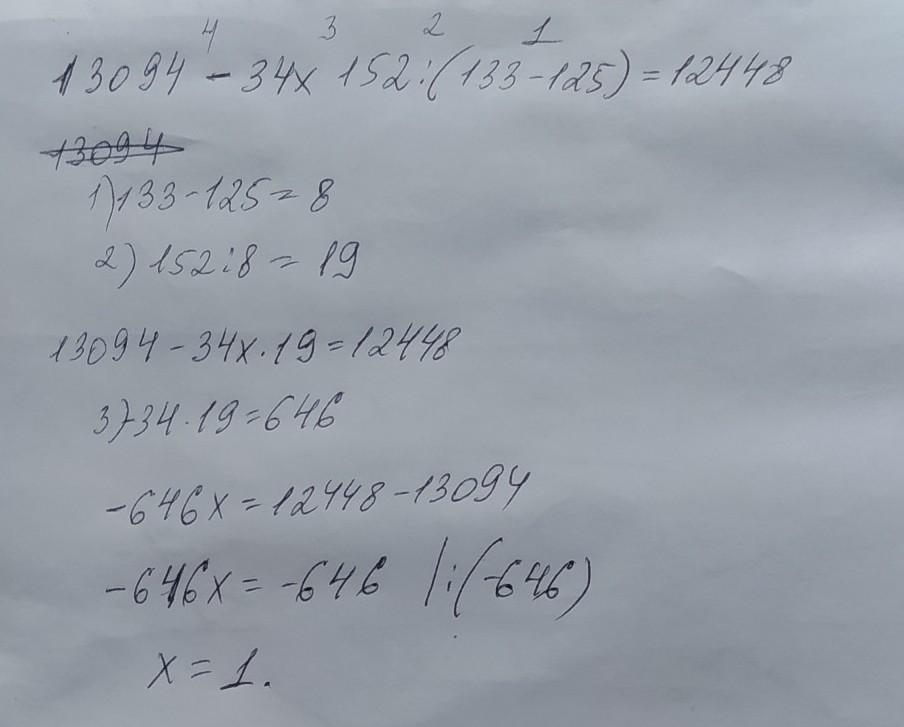 4 3 2 1
13094 - 34x 152:(133-125) = 12448
13094
1) 133-125 = 8
2) 152:8 = 19
13094 - 34x·19 = 12448
3) 34·19 = 646
-646x = 12448-13094
-646x = -646 |:(-646)
x = 1.